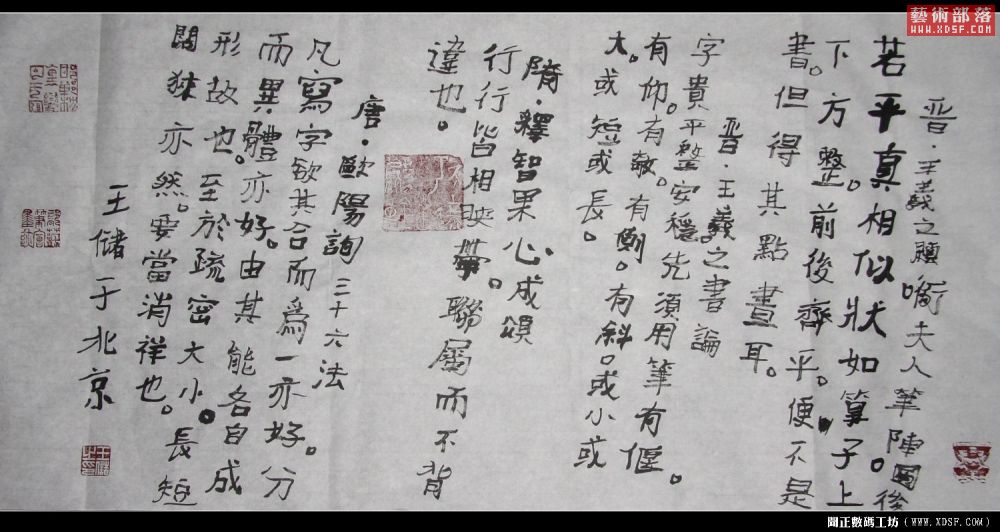 藝術部落
www.XDSF.com
晋·王羲之題衛夫人筆陣圖後
若平真相似狀如算子。上
下方整。前後齊平。便不是
書。但得其點畫耳。
晋·王羲之書論
字貴平整安穩先須用筆有偃。
有仰。有敧。有側。有斜。或小或
大。或短或長。
隋·釋智果心成頌
行行皆相映帶。聯屬而不背
違也。
唐·歐陽詢三十六法
凡寫字欲其合而爲一亦好。分
而異體亦好。由其能各自成
形故也。至於疏密大小。長短
闊狹亦然。要當消祥也。
王儲于北京
閣正數碼工坊（WWW.XDSF.COM）